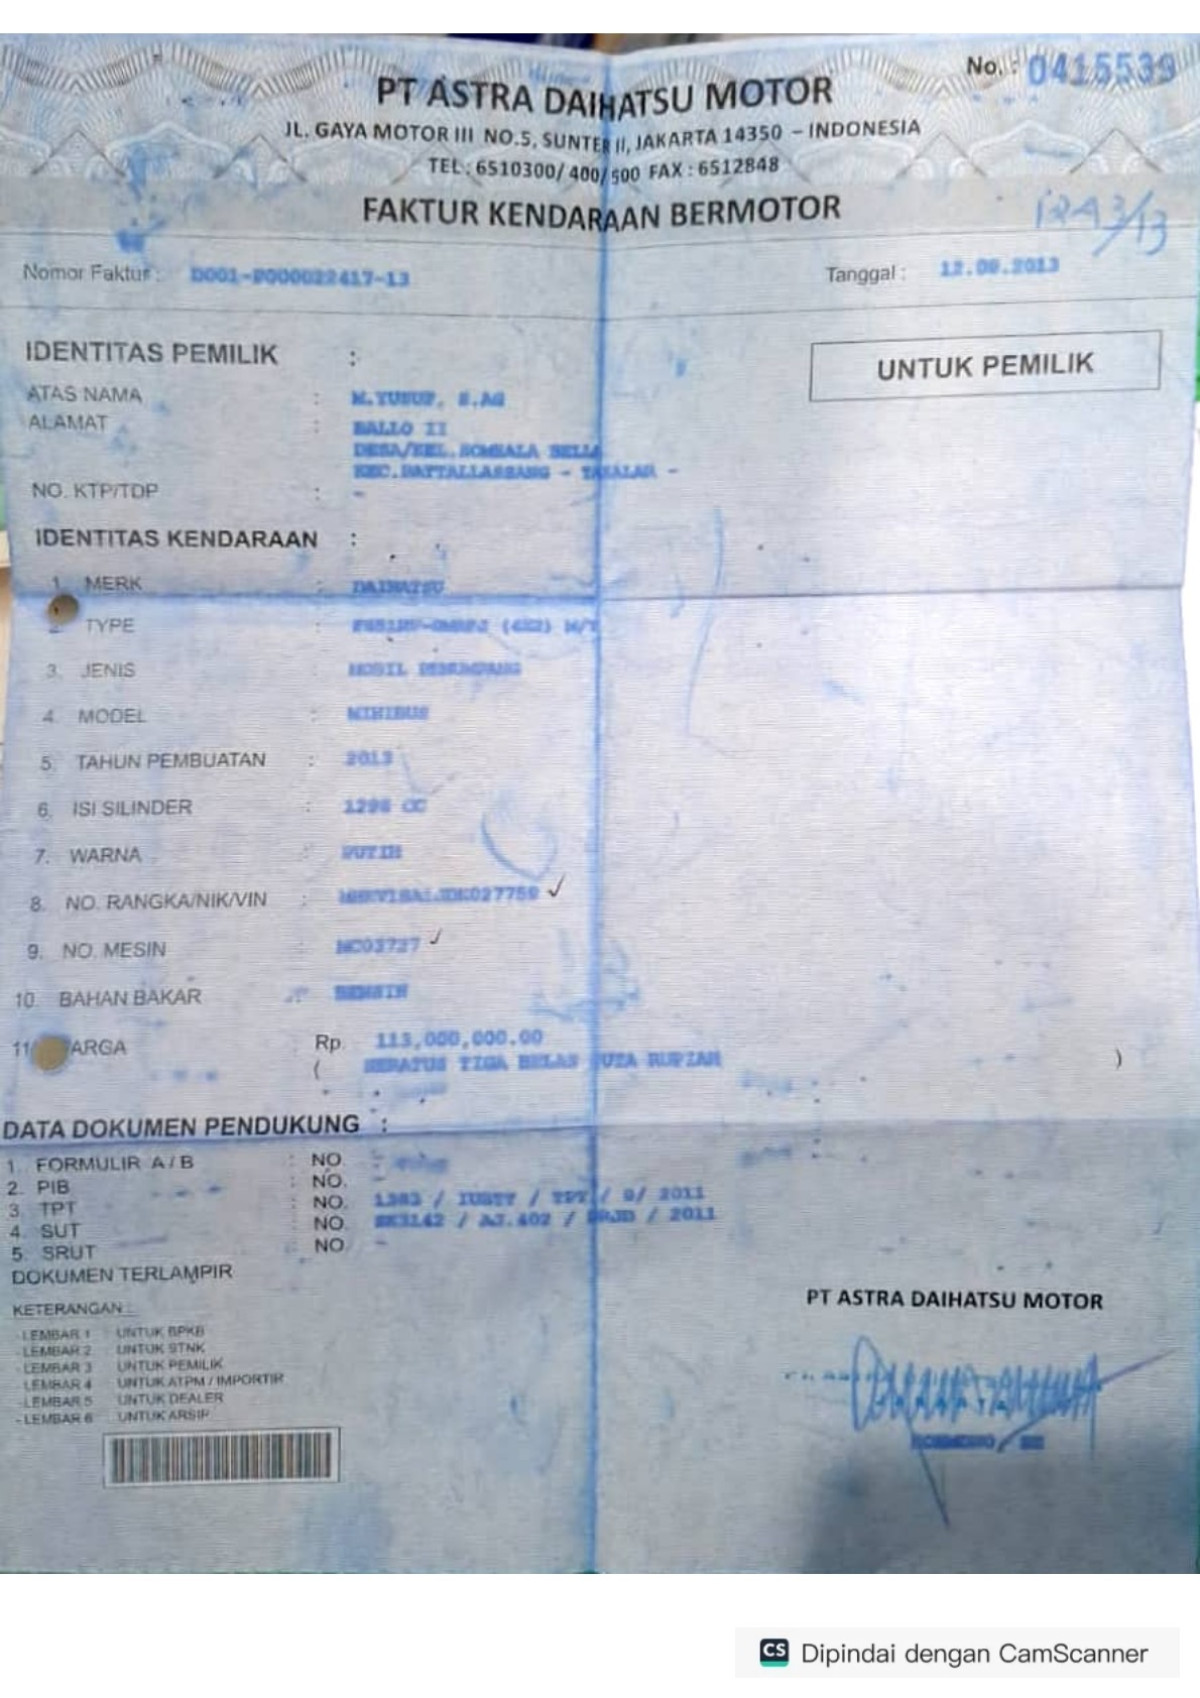 No. : 0415539
PT ASTRA DAIHATSU MOTOR
JL. GAYA MOTOR III NO.5, SUNTER II, JAKARTA 14350 – INDONESIA
TEL : 6510300/ 400/ 500 FAX : 6512848
FAKTUR KENDARAAN BERMOTOR
Nomor Faktur : D001-P000022417-13
Tanggal : 12.09.2013
IDENTITAS PEMILIK :
UNTUK PEMILIK
ATAS NAMA : M.YUSUF, S.AG
ALAMAT : BALLO II
DESA/KEL.SOMBALA BELLA
KEC.PATTALLASSANG - TAKALAR -
NO. KTP/TDP : -
IDENTITAS KENDARAAN :
1. MERK : DAIHATSU
2. TYPE : (4X2) M/T
3. JENIS MOBIL PENUMPANG
4. MODEL : MINIBUS
5. TAHUN PEMBUATAN : 2013
6. ISI SILINDER : 1298 CC
7. WARNA : PUTIH
8. NO. RANGKA/NIK/VIN :
9. NO. MESIN
10. BAHAN BAKAR : BENSIN
11. ARGA Rp. 113,000,000.00
( SERATUS TIGA BELAS JUTA RUPIAH )
DATA DOKUMEN PENDUKUNG :
1. FORMULIR A / B : NO. -
2. PIB : NO. -
3. TPT : NO. / TPT / 9/ 2011
4. SUT : NO. / AJ.402 / DRJD / 2011
5. SRUT : NO. -
DOKUMEN TERLAMPIR
KETERANGAN :
PT ASTRA DAIHATSU MOTOR
- LEMBAR 1 UNTUK BPKB
- LEMBAR 2 UNTUK STNK
- LEMBAR 3 UNTUK PEMILIK
- LEMBAR 4 UNTUK ATPM / IMPORTIR
- LEMBAR 5 UNTUK DEALER
- LEMBAR 6 UNTUK ARSIP
CS Dipindai dengan CamScanner